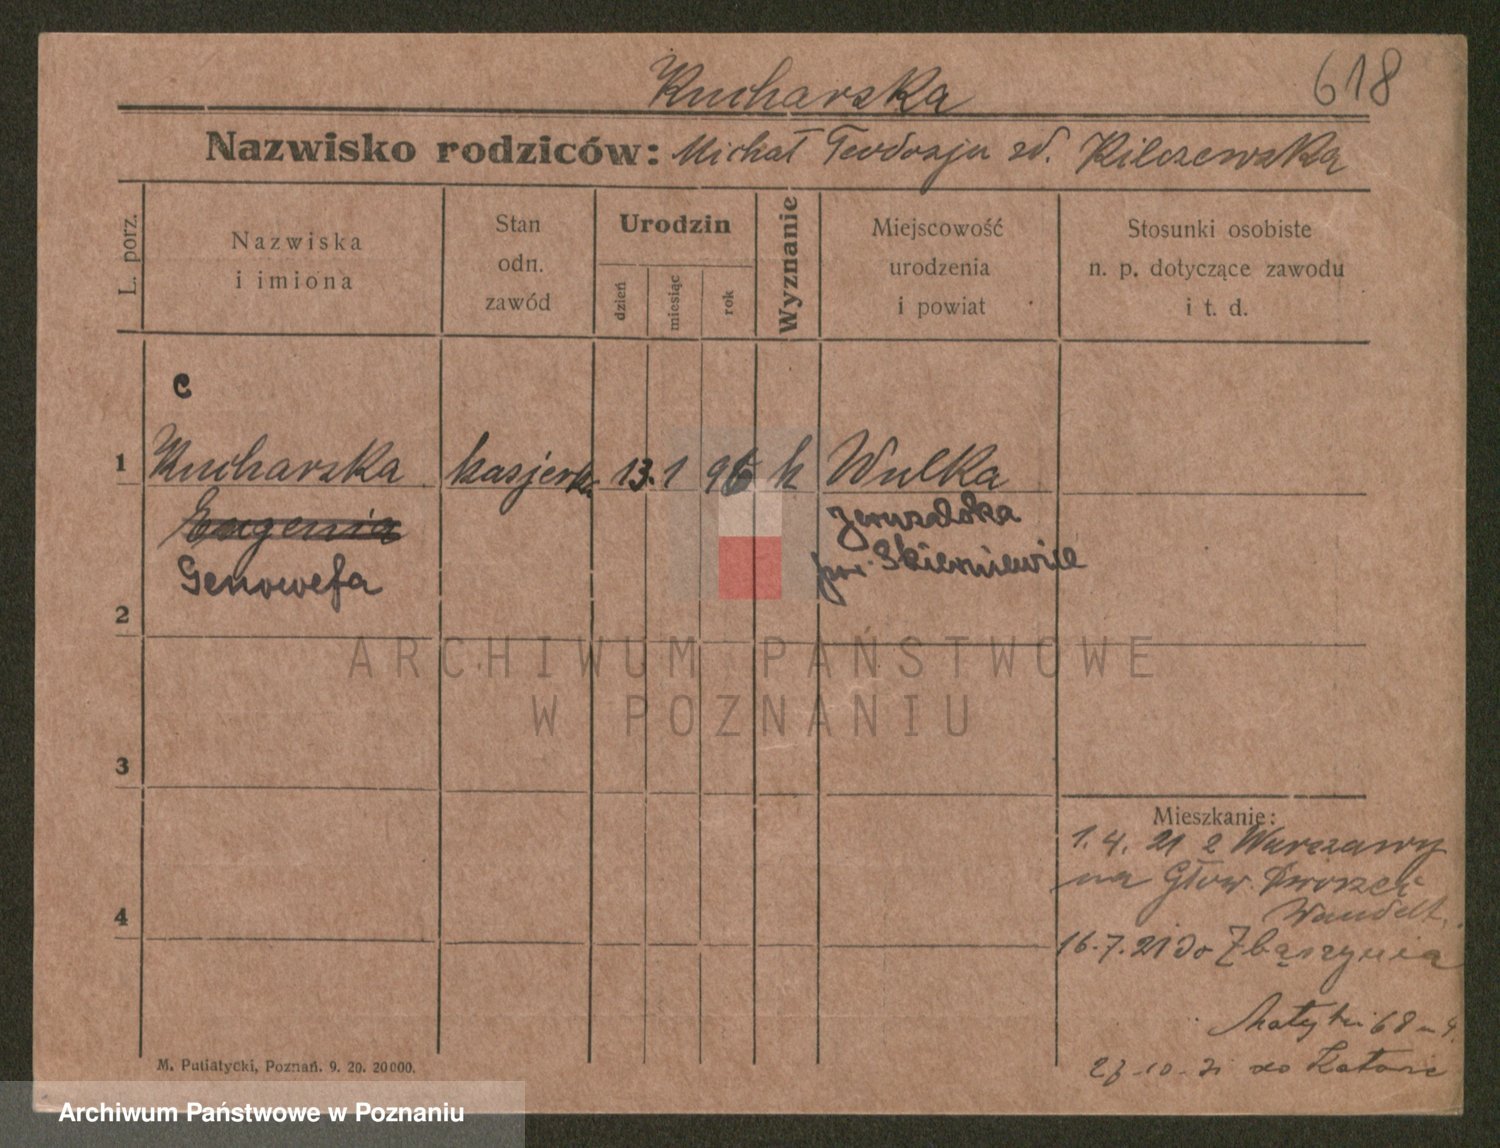 618
Kucharska
Nazwisko rodziców: Michał Teodozja zd. Kilczewska
L. porz.
Nazwiska
i imiona
Stan
odn.
zawód
Urodzin
dzień
miesiąc
rok
Wyznanie
Miejscowość
urodzenia
i powiat
Stosunki osobiste
n. p. dotyczące zawodu
i t. d.
c
1 Kucharska kasjerka 13. 1 96 k Wulka
Eugenia
Jeruzalska
Genowefa
pow. Skierniewice
2
ARCHIWUM PAŃSTWOWE
W POZNANIU
3
Mieszkanie:
1. 4. 21 z Warszawy
na Głow. Dworzec
4
16.7.21 do Zbąszynia
Matejki 68
do
M. Putiatycki, Poznań. 9. 20. 20000.
Archiwum Państwowe w Poznaniu